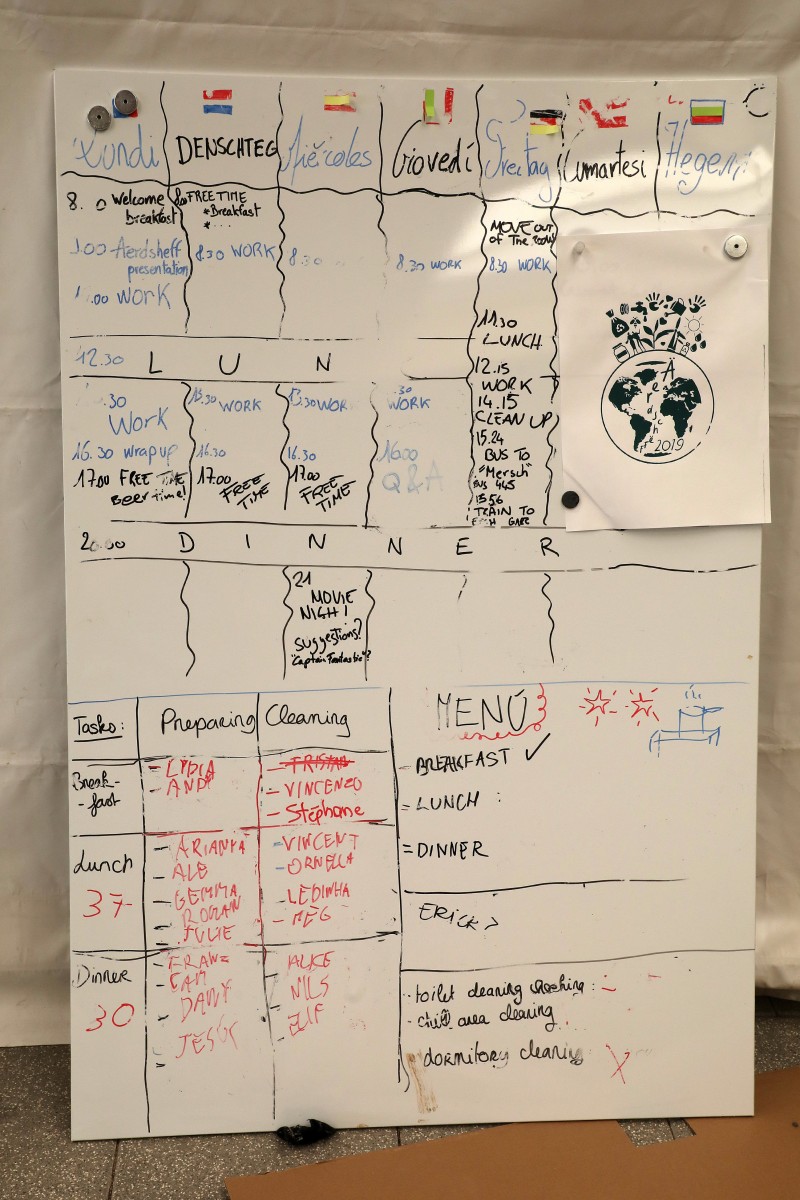 Lundi DENSCHTEG Miércoles Giovedí Freitag Cumartesi
8. 0 Welcome breakfast
FREE TIME
*Breakfast
Aerdsheff presentation
.00 WORK
8.30 WORK
8.30
8.30 WORK
MOVE OUT
OF THE ROOM
8.30 WORK
11.30
LUNCH
12.15
WORK
14.15
CLEAN UP
15.24
BUS TO
"Mersch"
BUS 445
15.56
TRAIN TO
12.30 L U N
.30
Work
16.30 wrap up
17.00 FREE TIME
Beer time!
13.30 WORK
16.30
17.00 FREE TIME
13.30 WORK
16.30
17.00 FREE TIME
.30
WORK
16.00
Q&A
Äerdschëff
2019
20.00 D I N N E R
21
MOVIE
NIGHT!
Suggestions?
"Captain Fantastic"?
Tasks: Preparing Cleaning
Break-
-fast
- LYDIA
- AND
- TRISTAN
- VINCENZO
- Stéphane
Lunch
37
- ARIANNA
- ALE
- GEMMA
- ROMAN
- JULIE
- VINCENT
- ORNELLA
- LEDINHA
- MEG
Dinner
30
- FRAN
- CAM
- DANY
- JESÚS
- ALICE
- NILS
- ELIF
MENÚ
- BREAKFAST ✓
- LUNCH :
= DINNER
ERICK >
- toilet cleaning checking :
- chill area cleaning
dormitory cleaning X